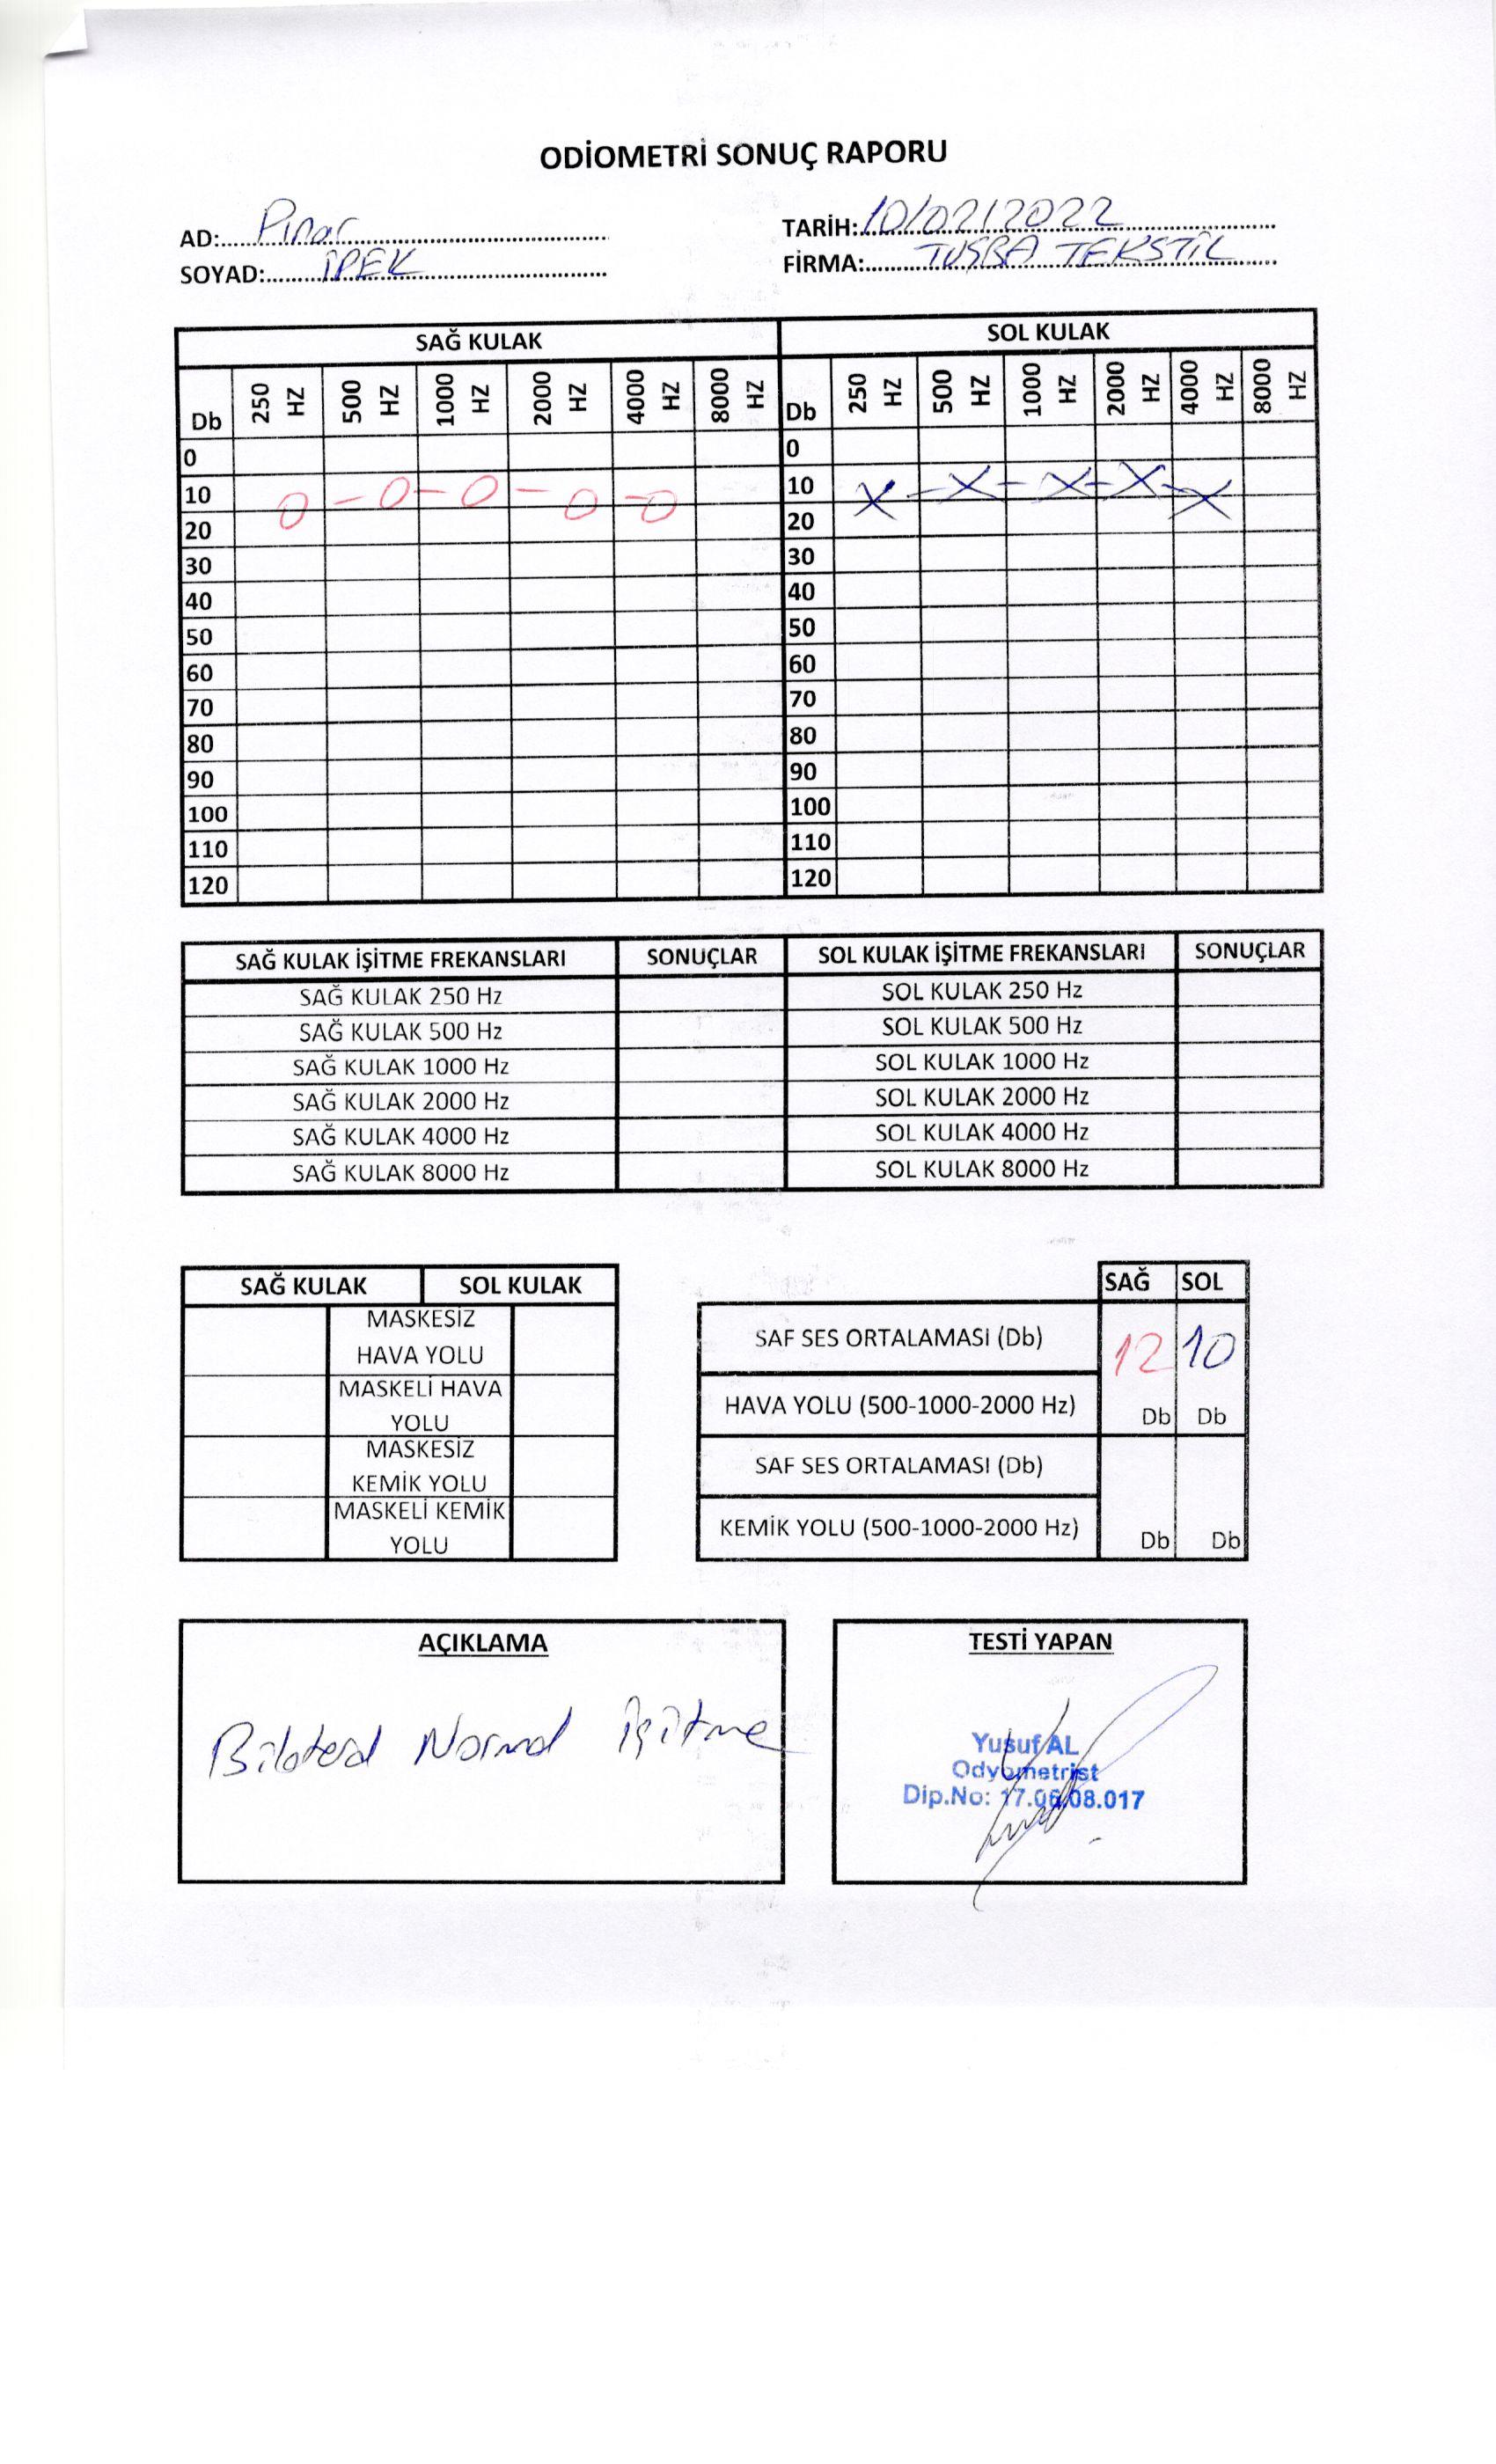 ODİOMETRİ SONUÇ RAPORU
AD: Pınar
TARİH: 10/02/2022
SOYAD: İPEK
FİRMA: TUŞBA TEKSTİL
SAĞ KULAK SOL KULAK
Db 250 HZ 500 HZ 1000 HZ 2000 HZ 4000 HZ 8000 HZ Db 250 HZ 500 HZ 1000 HZ 2000 HZ 4000 HZ 8000 HZ
0 0
10 10
20 20
30 30
40 40
50 50
60 60
70 70
80 80
90 90
100 100
110 110
120 120
SAĞ KULAK İŞİTME FREKANSLARI SONUÇLAR SOL KULAK İŞİTME FREKANSLARI SONUÇLAR
SAĞ KULAK 250 Hz SOL KULAK 250 Hz
SAĞ KULAK 500 Hz SOL KULAK 500 Hz
SAĞ KULAK 1000 Hz SOL KULAK 1000 Hz
SAĞ KULAK 2000 Hz SOL KULAK 2000 Hz
SAĞ KULAK 4000 Hz SOL KULAK 4000 Hz
SAĞ KULAK 8000 Hz SOL KULAK 8000 Hz
SAĞ KULAK SOL KULAK
MASKESİZ
HAVA YOLU
MASKELİ HAVA
YOLU
MASKESİZ
KEMİK YOLU
MASKELİ KEMİK
YOLU
SAĞ SOL
SAF SES ORTALAMASI (Db) 12 10
HAVA YOLU (500-1000-2000 Hz) Db Db
SAF SES ORTALAMASI (Db)
KEMİK YOLU (500-1000-2000 Hz) Db Db
AÇIKLAMA
Bilateral Normal İşitme
TESTİ YAPAN
Yusuf AL
Odyometrist
Dip.No: 17.06.08.017